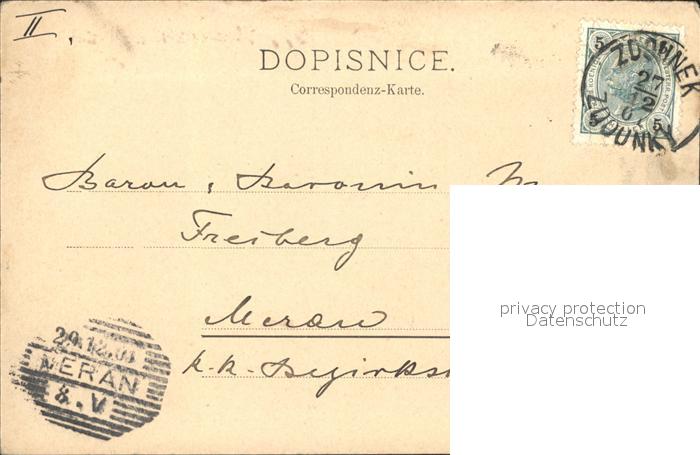 II.
DOPISNICE.
Correspondenz-Karte.
5 5
ZDOUNEK
27
12
ZDOUNKY
5 5
Baron, Baronin
Freiberg
Meran
k.k. Bezirks
29.12.01
MERAN
8.V
privacy protection
Datenschutz